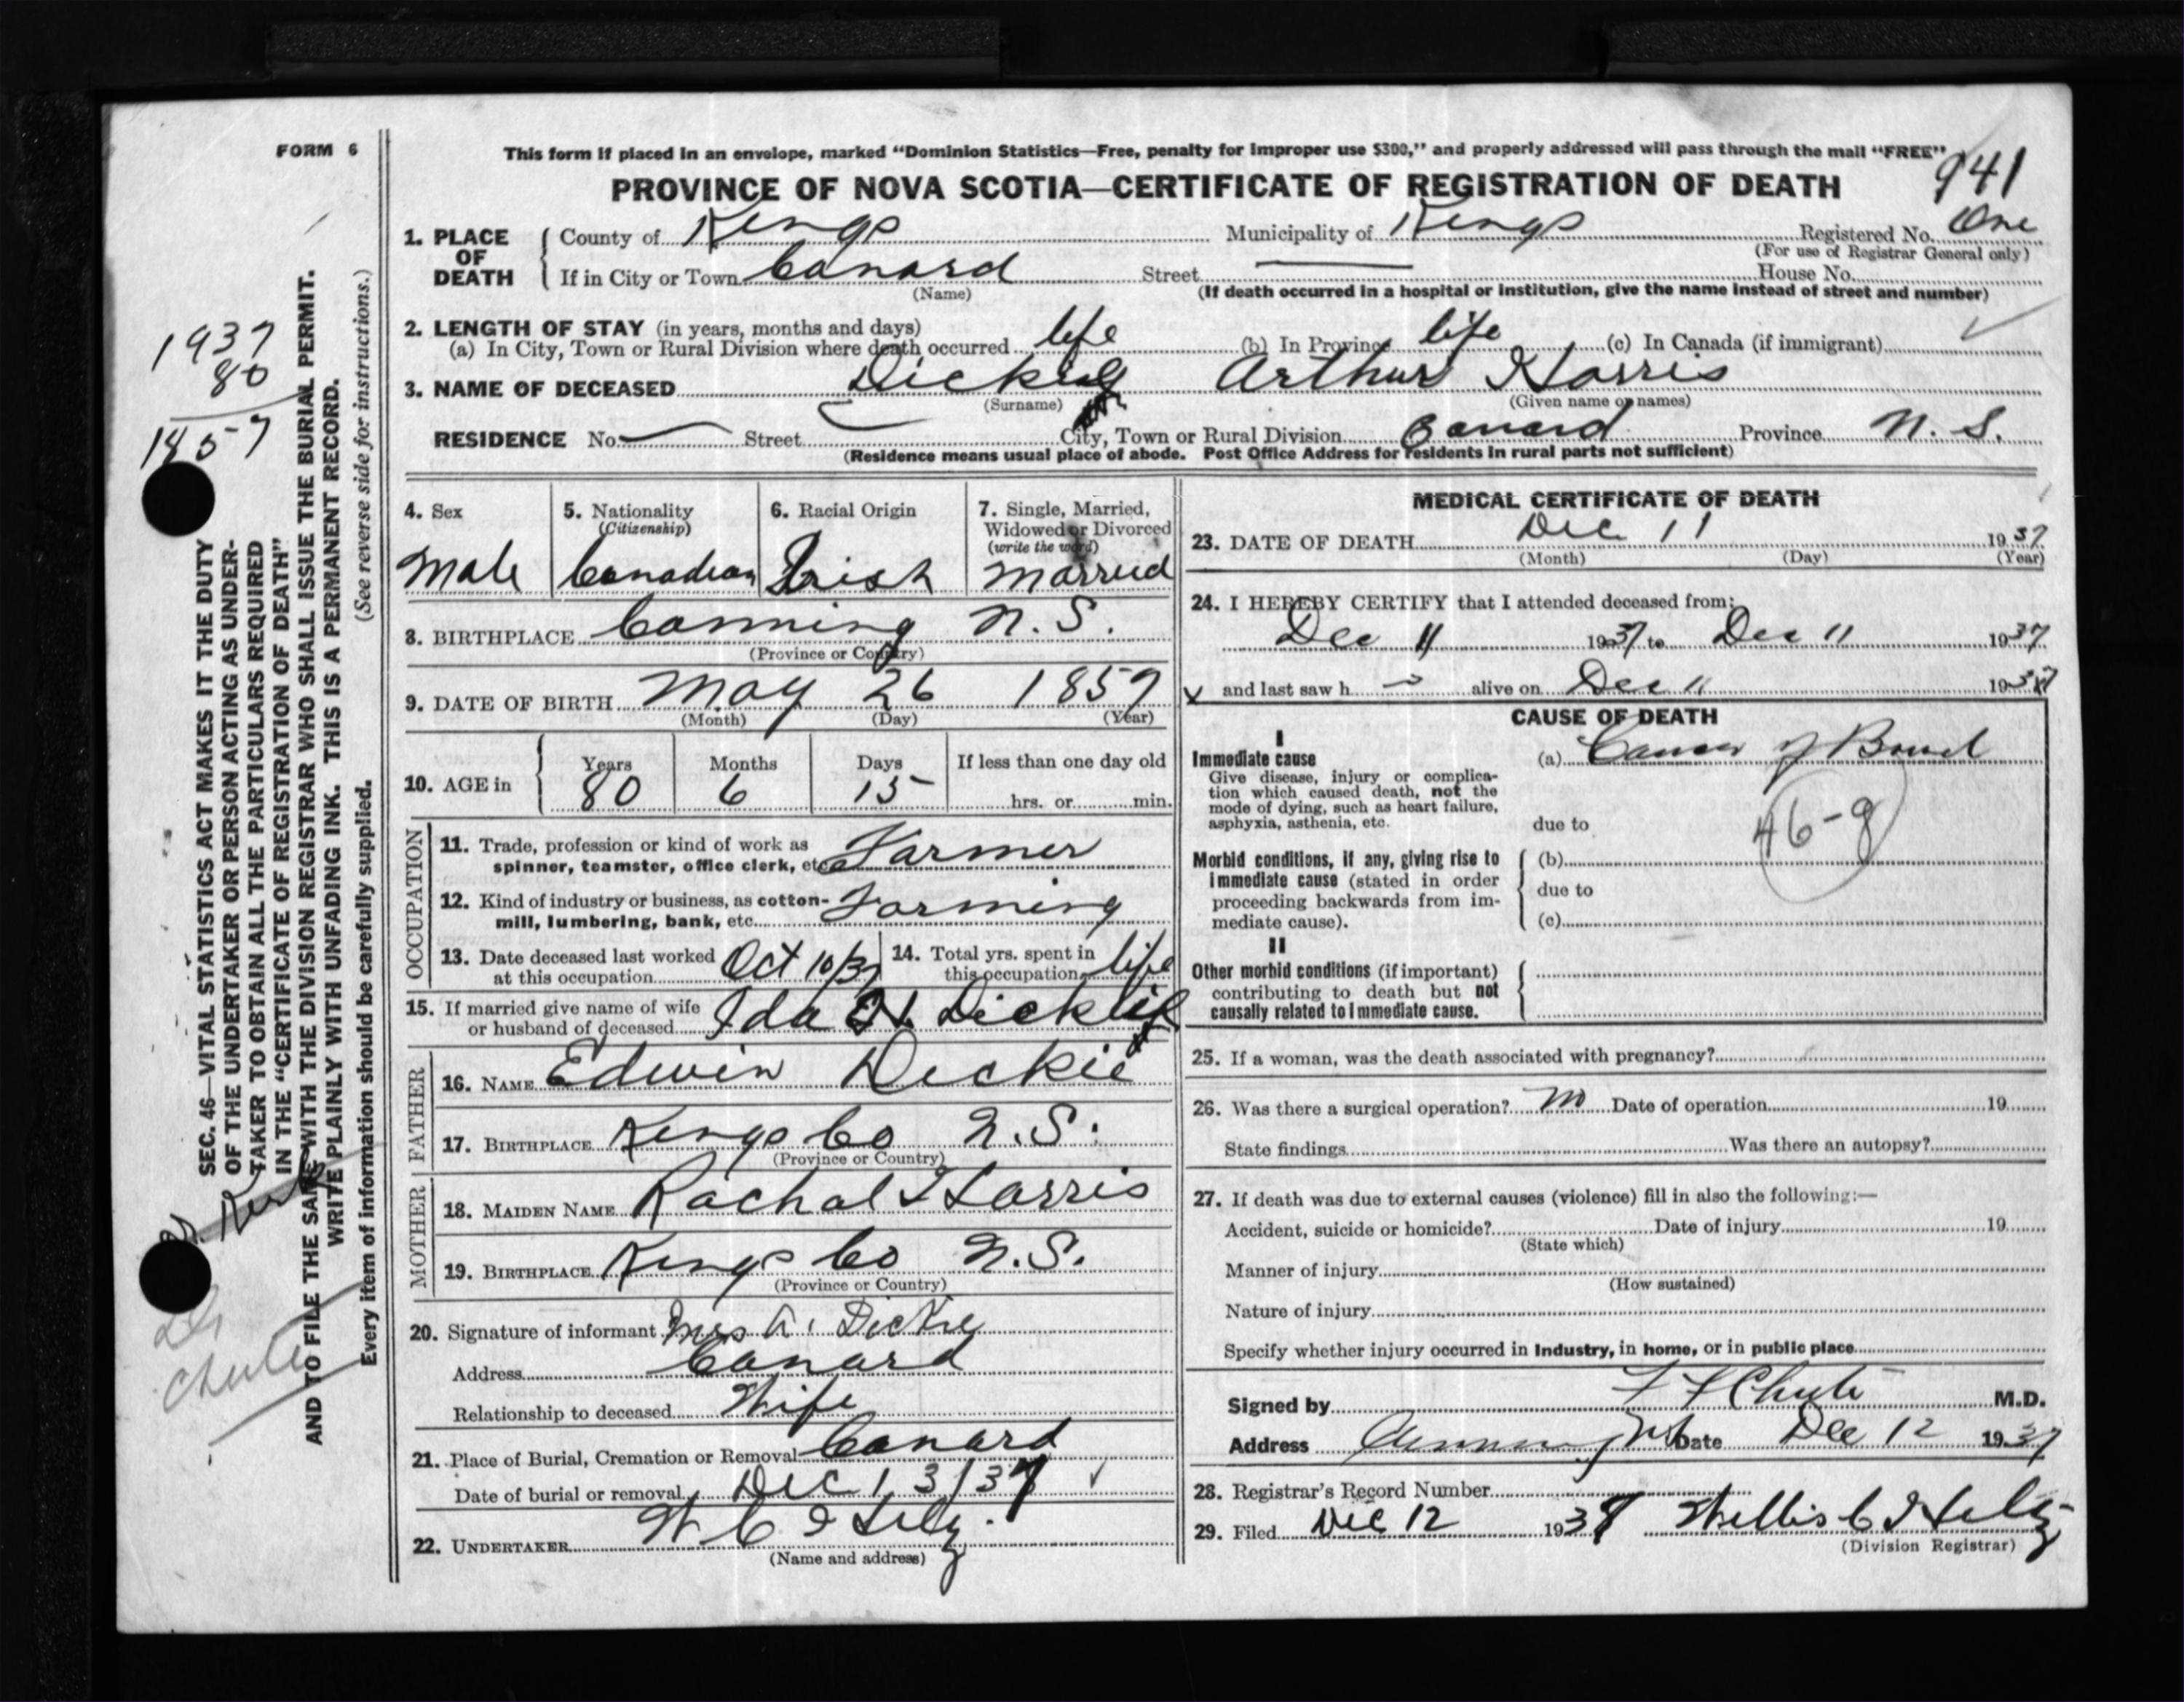 FORM 6
This form if placed in an envelope, marked “Dominion Statistics—Free, penalty for improper use $300,” and properly addressed will pass through the mail “FREE”
941
PROVINCE OF NOVA SCOTIA—CERTIFICATE OF REGISTRATION OF DEATH
1. PLACE OF DEATH
County of Kings Municipality of Kings Registered No. One
(For use of Registrar General only)
If in City or Town Canard Street — House No.
(Name) (If death occurred in a hospital or institution, give the name instead of street and number)
2. LENGTH OF STAY (in years, months and days)
(a) In City, Town or Rural Division where death occurred life (b) In Province life (c) In Canada (if immigrant)
3. NAME OF DECEASED Dickie Arthur Harris
(Surname) (Given name or names)
RESIDENCE No. — Street City, Town or Rural Division Canard Province N. S.
(Residence means usual place of abode. Post Office Address for residents in rural parts not sufficient)
1937
80
1857
SEC. 46—VITAL STATISTICS ACT MAKES IT THE DUTY
OF THE UNDERTAKER OR PERSON ACTING AS UNDER-
TAKER TO OBTAIN ALL THE PARTICULARS REQUIRED
IN THE “CERTIFICATE OF REGISTRATION OF DEATH”
AND TO FILE THE SAME WITH THE DIVISION REGISTRAR WHO SHALL ISSUE THE BURIAL PERMIT.
WRITE PLAINLY WITH UNFADING INK. THIS IS A PERMANENT RECORD.
Every item of information should be carefully supplied. (See reverse side for instructions.)
Dr
Chute
4. Sex
Male
5. Nationality
(Citizenship)
Canadian
6. Racial Origin
Irish
7. Single, Married,
Widowed or Divorced
(write the word)
Married
8. BIRTHPLACE Canning N. S.
(Province or Country)
9. DATE OF BIRTH May 26 1857
(Month) (Day) (Year)
10. AGE in
Years Months Days If less than one day old
80 6 15 hrs. or min.
OCCUPATION
11. Trade, profession or kind of work as
spinner, teamster, office clerk, etc. Farmer
12. Kind of industry or business, as cotton-
mill, lumbering, bank, etc. Farming
13. Date deceased last worked
at this occupation Oct 10/37
14. Total yrs. spent in
this occupation life
15. If married give name of wife
or husband of deceased Ida H. Dickie
FATHER
16. NAME Edwin Dickie
17. BIRTHPLACE Kings Co N.S.
(Province or Country)
MOTHER
18. MAIDEN NAME Rachal Harris
19. BIRTHPLACE Kings Co N.S.
(Province or Country)
20. Signature of informant Mrs A. Dickie
Address Canard
Relationship to deceased Wife
21. Place of Burial, Cremation or Removal Canard
Date of burial or removal Dec 13/37
22. UNDERTAKER W C
(Name and address)
MEDICAL CERTIFICATE OF DEATH
23. DATE OF DEATH Dec 11 1937
(Month) (Day) (Year)
24. I HEREBY CERTIFY that I attended deceased from:
Dec 11 1937 to Dec 11 1937
and last saw h alive on Dec 11 1937
CAUSE OF DEATH
I
Immediate cause
Give disease, injury or complica-
tion which caused death, not the
mode of dying, such as heart failure,
asphyxia, asthenia, etc.
(a) Cancer of Bowel
due to
46-g
Morbid conditions, if any, giving rise to
immediate cause (stated in order
proceeding backwards from im-
mediate cause).
(b)
due to
(c)
II
Other morbid conditions (if important)
contributing to death but not
causally related to immediate cause.
25. If a woman, was the death associated with pregnancy?
26. Was there a surgical operation? no Date of operation 19
State findings Was there an autopsy?
27. If death was due to external causes (violence) fill in also the following:—
Accident, suicide or homicide? Date of injury 19
(State which)
Manner of injury
(How sustained)
Nature of injury
Specify whether injury occurred in Industry, in home, or in public place
Signed by F F Chute M.D.
Address Canning NS Date Dec 12 1937
28. Registrar's Record Number
29. Filed Dec 12 1937
(Division Registrar)